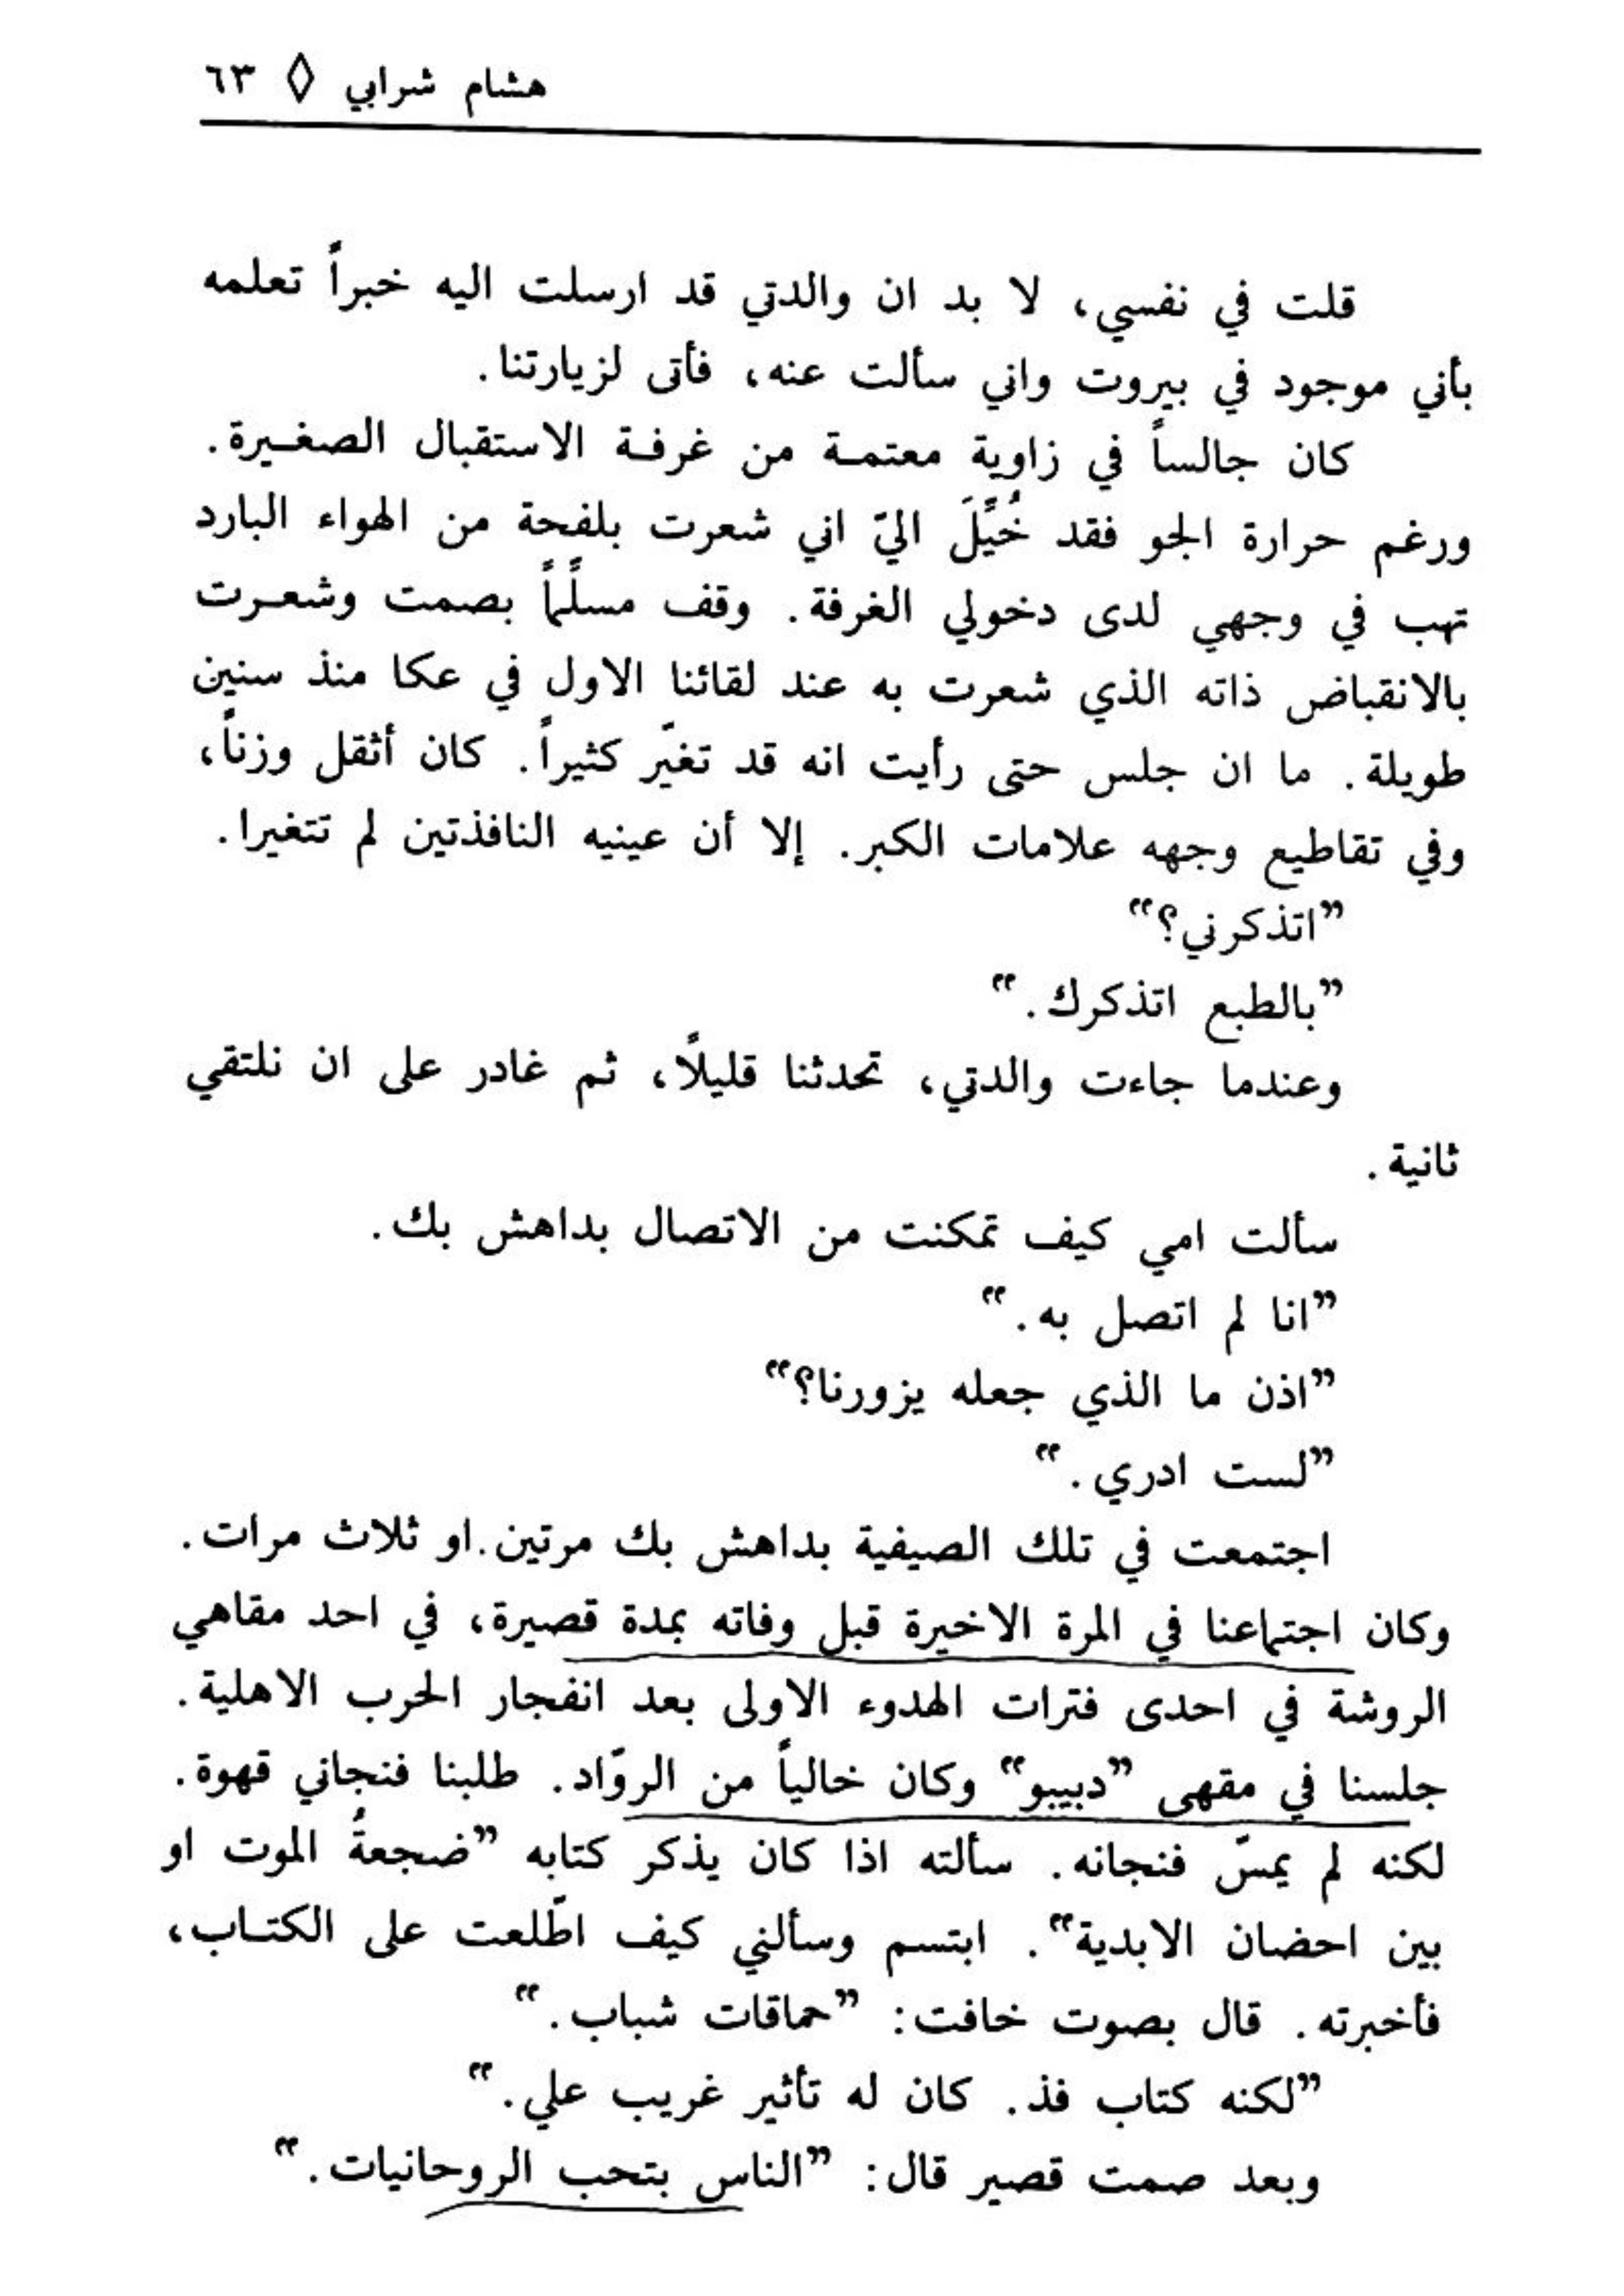 هشام شرابي ◊ ٦٣
قلت في نفسي، لا بد ان والدتي قد ارسلت اليه خبراً تعلمه
بأني موجود في بيروت واني سألت عنه، فأتى لزيارتنا.
كان جالساً في زاوية معتمـة من غرفـة الاستقبال الصغـيرة.
ورغم حرارة الجو فقد خُيِّلَ اليّ اني شعرت بلفحة من الهواء البارد
تهب في وجهي لدى دخولي الغرفة. وقف مسلِّماً بصمت وشعـرت
بالانقباض ذاته الذي شعرت به عند لقائنا الاول في عكا منذ سنين
طويلة. ما ان جلس حتى رأيت انه قد تغيّر كثيراً. كان أثقل وزناً،
وفي تقاطيع وجهه علامات الكبر. إلا أن عينيه النافذتين لم تتغيرا.
”اتذكرني؟“
”بالطبع اتذكرك.“
وعندما جاءت والدتي، تحدثنا قليلاً، ثم غادر على ان نلتقي
ثانية.
سألت امي كيف تمكنت من الاتصال بداهش بك.
”انا لم اتصل به.“
”اذن ما الذي جعله يزورنا؟“
”لست ادري.“
اجتمعت في تلك الصيفية بداهش بك مرتين.او ثلاث مرات.
وكان اجتماعنا في المرة الاخيرة قبل وفاته بمدة قصيرة، في احد مقاهي
الروشة في احدى فترات الهدوء الاولى بعد انفجار الحرب الاهلية.
جلسنا في مقهى ”دبيبو“ وكان خالياً من الروّاد. طلبنا فنجاني قهوة.
لكنه لم يمسّ فنجانه. سألته اذا كان يذكر كتابه ”ضجعةُ الموت او
بين احضان الابدية“. ابتسم وسألني كيف اطّلعت على الكتـاب،
فأخبرته. قال بصوت خافت: ”حماقات شباب.“
”لكنه كتاب فذ. كان له تأثير غريب علي.“
وبعد صمت قصير قال: ”الناس بتحب الروحانيات.“